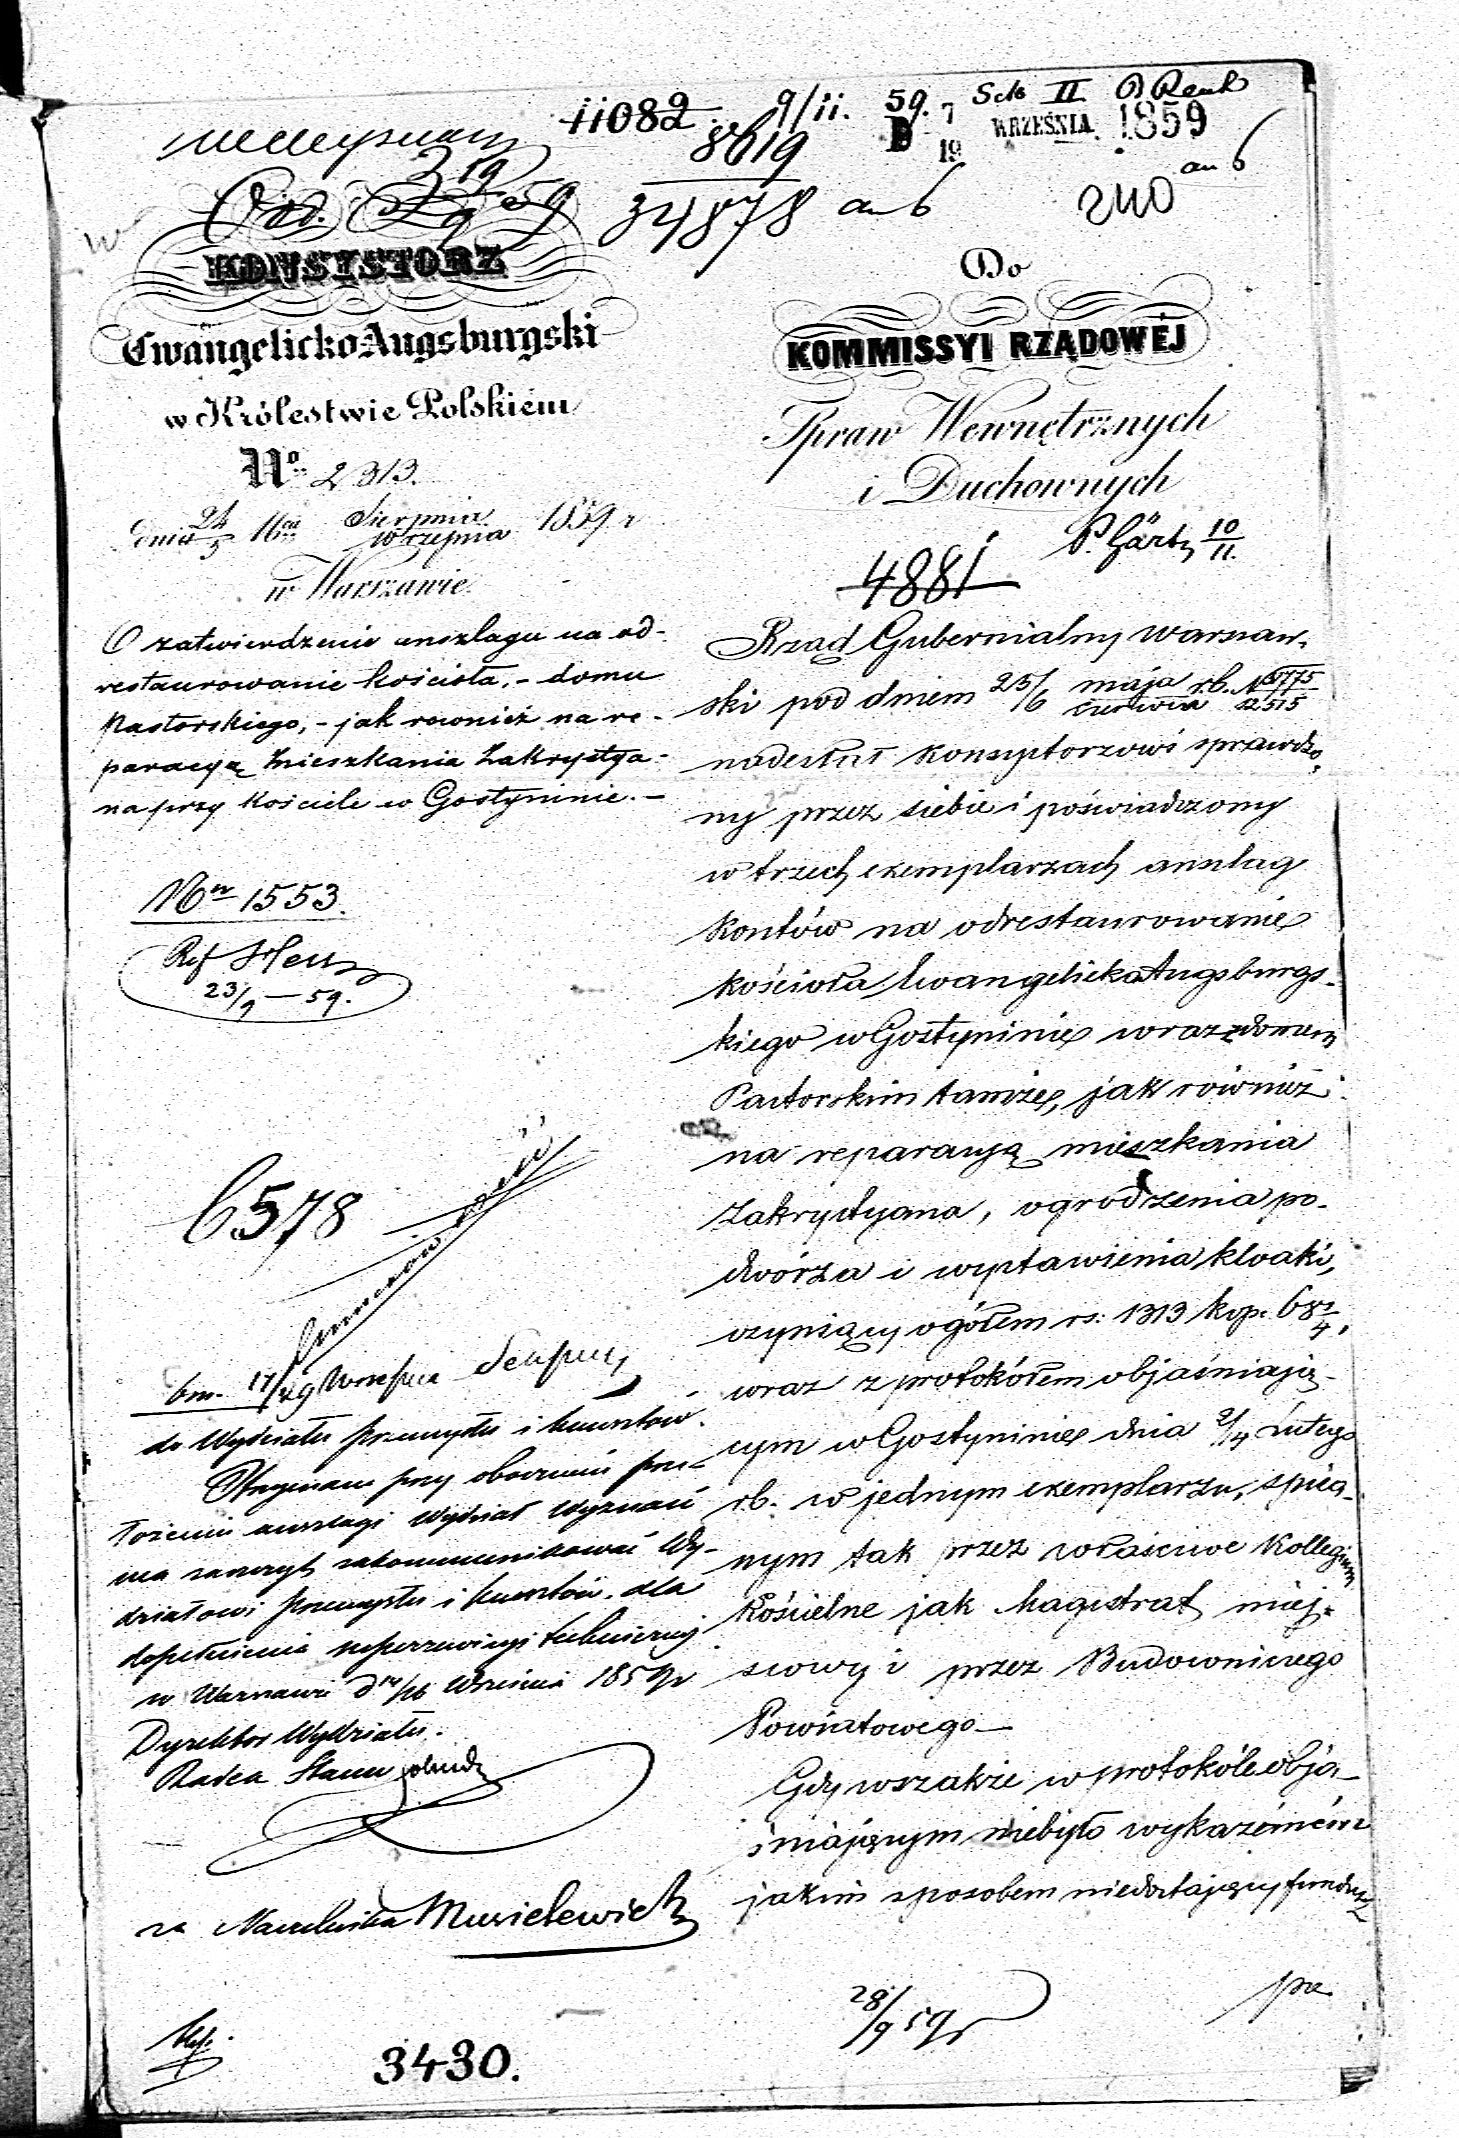 11082 9/11. 59. Sek II
8619
B 7 WRZEŚNIA 1859
19
34878 an 6 240 an 6
KONSYSTORZ
Ewangelicko-Augsburgski
w Królestwie Polskiém
No 2313.
dnia 24/5 Sierpnia/Września 1859 r
w Warszawie.
O zatwierdzenie anszlagu na od-
restaurowanie kościoła, - domu
Pastorskiego, - jak rownież na re-
paracyą Mieszkania Zakrystya-
na przy Kościele w Gostyninie. -
Nr 1553.
Ref
23/9 - 59.
6578
do Wydziału Przemysłu i Kunsztów.
Wydział Wyznań
ma zaszczyt zakommunikować Wy-
działowi Przemysłu i Kunsztów. dla
dopełnienia superrewizyi technicznej
w Warszawie d 4/16 Września 1859 r
Dyrektor Wydziału.
Radca Stanu
za Naczelnika Musielewicz
3430.
Do
KOMMISSYI RZĄDOWÉJ
Spraw Wewnętrznych
i Duchownych
P. Gärtz 10/11.
4881
Rząd Gubernialny Warszaw-
ski pod dniem 25/6 maja/czerwca r.b. N 5775/12515
nadesłał Konsystorzowi sprawdzo-
ny przez siebie i poświadczony
w trzech exemplarzach anszlag
kosztów na odrestaurowanie
kościoła Ewangelicko Augsburgs-
kiego w Gostyninie wraz z domem
Pastorskim tamże, jak również
na reparacyą mieszkania
Zakrystyana, ogrodzenia po-
dwórza i wystawienia kloaki,
czyniący ogółem rs: 1313 kop. 68 3/4,
wraz z protokółem objaśniają-
cym w Gostyninie dnia 2/14 Lutego
r.b. w jednym exemplarzu, spisa-
nym tak przez właściwe Kollegium
Kościelne jak Magistrat miej-
scowy i przez Budowniczego
Powiatowego -
Gdy wszakże w protokóle obja-
śniającym niebyło wykazaném
jakim sposobem niedostający fundusz
28/9 59 r